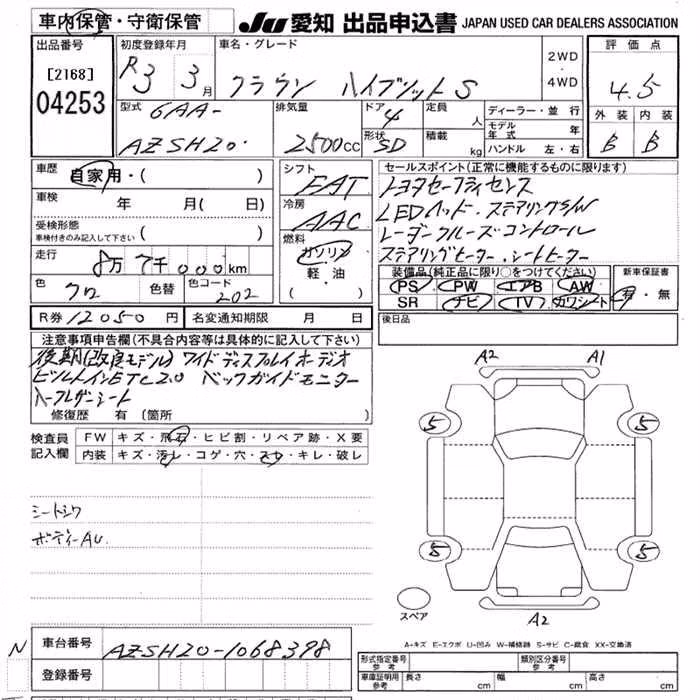 車内保管・守衛保管 JU 愛知 出品申込書 JAPAN USED CAR DEALERS ASSOCIATION
出品番号 初度登録年月 車名・グレード 2WD・4WD 評価点
[2168] 04253 R3年 3月 クラウン ハイブリットS 4.5
型式 排気量 ドア 定員 ディーラー・並行 外装 内装
6AA-AZSH20 2500cc 4 人 モデル年式 年 B B
形状 SD 積載 kg ハンドル 左・右
車歴 自家用・( ) シフト FAT セールスポイント(正常に機能するものに限ります)
車検 年 月( 日) 冷房 AAC トヨタセーフティセンス
受検形態 車検付きのみ記入して下さい ( ) LEDヘッド・ステアリングS/W
走行 8万7千000km 燃料 ガソリン・軽油 ( ) レーダークルーズコントロール
ステアリングヒーター・シートヒーター
色 クロ 色替 色コード 202 装備品(純正品に限り○をつけてください) 新車保証書
PS PW エアB AW 有・無
SR ナビ TV カワシート
R券 12050円 名変通知期限 月 日 後日品
注意事項申告欄(不具合内容等は具体的に記入して下さい)
後期(改良モデル) ワイドディスプレイオーディオ
ビルトインETC2.0 バックガイドモニター
ハーフレザーシート
修復歴 有 (箇所
検査員記入欄 FW キズ・飛石・ヒビ割・リペア跡・X要
内装 キズ・汚レ・コゲ・穴・スレ・キレ・破レ
シートシワ
ボディーAU
A2 A1
5 5
5 5
スペア A2
A-キズ E-エクボ U-凹み W-補修跡 S-サビ C-腐食 XX-交換済
N 車台番号 AZSH20-1068398
登録番号
形式指定番号 参考 類別区分番号 参考
車庫証明用 参考 長さ cm 幅 cm 高さ cm